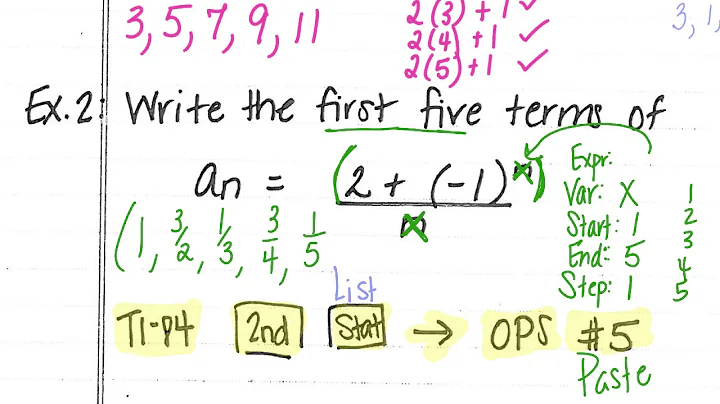 3, 5, 7, 9, 11
2(3) + 1 ✓
2(4) + 1 ✓
2(5) + 1 ✓
3, 1,
Ex. 2: Write the first five terms of
an = (2 + (-1)^x)
x
(1, 3/2, 1/3, 3/4, 1/5
Expr:
Var: X
Start: 1
End: 5
Step: 1
1
2
3
4
5
List
TI-84 2nd Stat → OPS #5
Paste